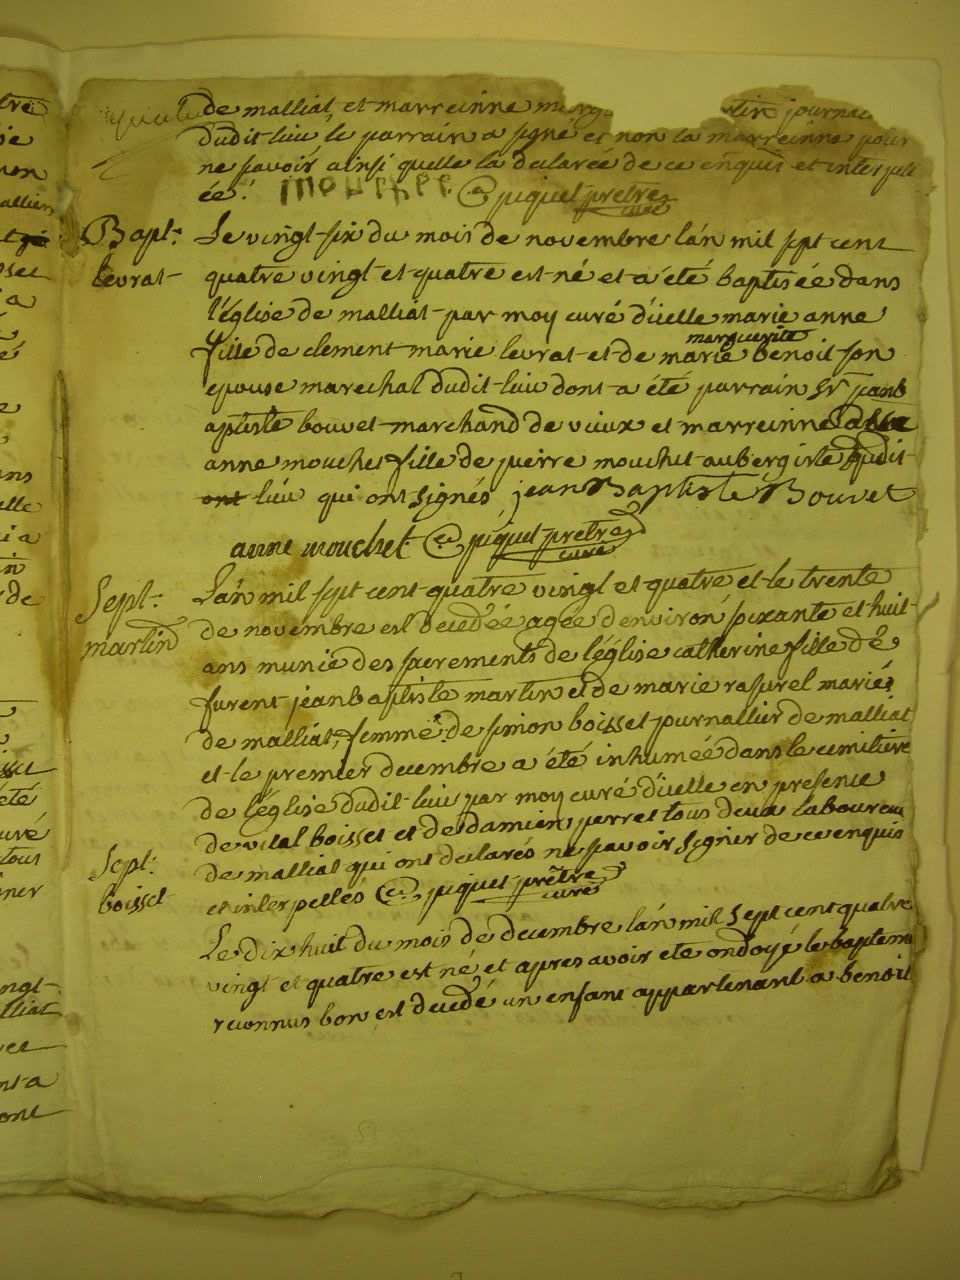 de malliat, et marreinne marg tin journal
dudit lieu le parrain a signé et non la marreinne pour
ne savoir ainsi quelle la declarée de ce enquis et interpell
ée. piquet prêtre
curé
Bapt:
levrat
Le vingt-six du mois de novembre l'an mil sept cent
quatre vingt et quatre est né et a été baptisée dans
l'église de malliat par moy curé d'icelle marie anne
marguerite
fille de clement marie levrat et de marie benoit son
epouse marechal dudit lieu dont a été parrain Sr jeanb
aptiste bouvet marchand de vieux et marreinne
anne mouchet fille de pierre mouchet aubergiste dudit
ont lieu qui ont signés jean Baptiste Bouvet
anne mouchet piquet prêtre
curé
Sept:
martin
L'an mil sept cent quatre vingt et quatre et le trente
de novembre est decedée agée d'environ soixante et huit
ans munie des sacrements de l'église catherine fille de
furent jeanbaptiste martin et de marie rasurel mariés
de malliat, femme de simon boisset journallier de malliat
et le premier decembre a été inhumée dans le cemitiere
de l'église dudit lieu par moy curé d'icelle en presence
de vital boisset et de damien perret tous deux laboureur
de malliat qui ont declarés ne savoir signer de ce enquis
et interpellés piquet prêtre
curé
Sept:
boisset
Le dix huit du mois de decembre l'an mil sept cent quatre
vingt et quatre est né et apres avoir eté ondoyé le bapteme
reconnus bon est decedé un enfant appartenant a benoit